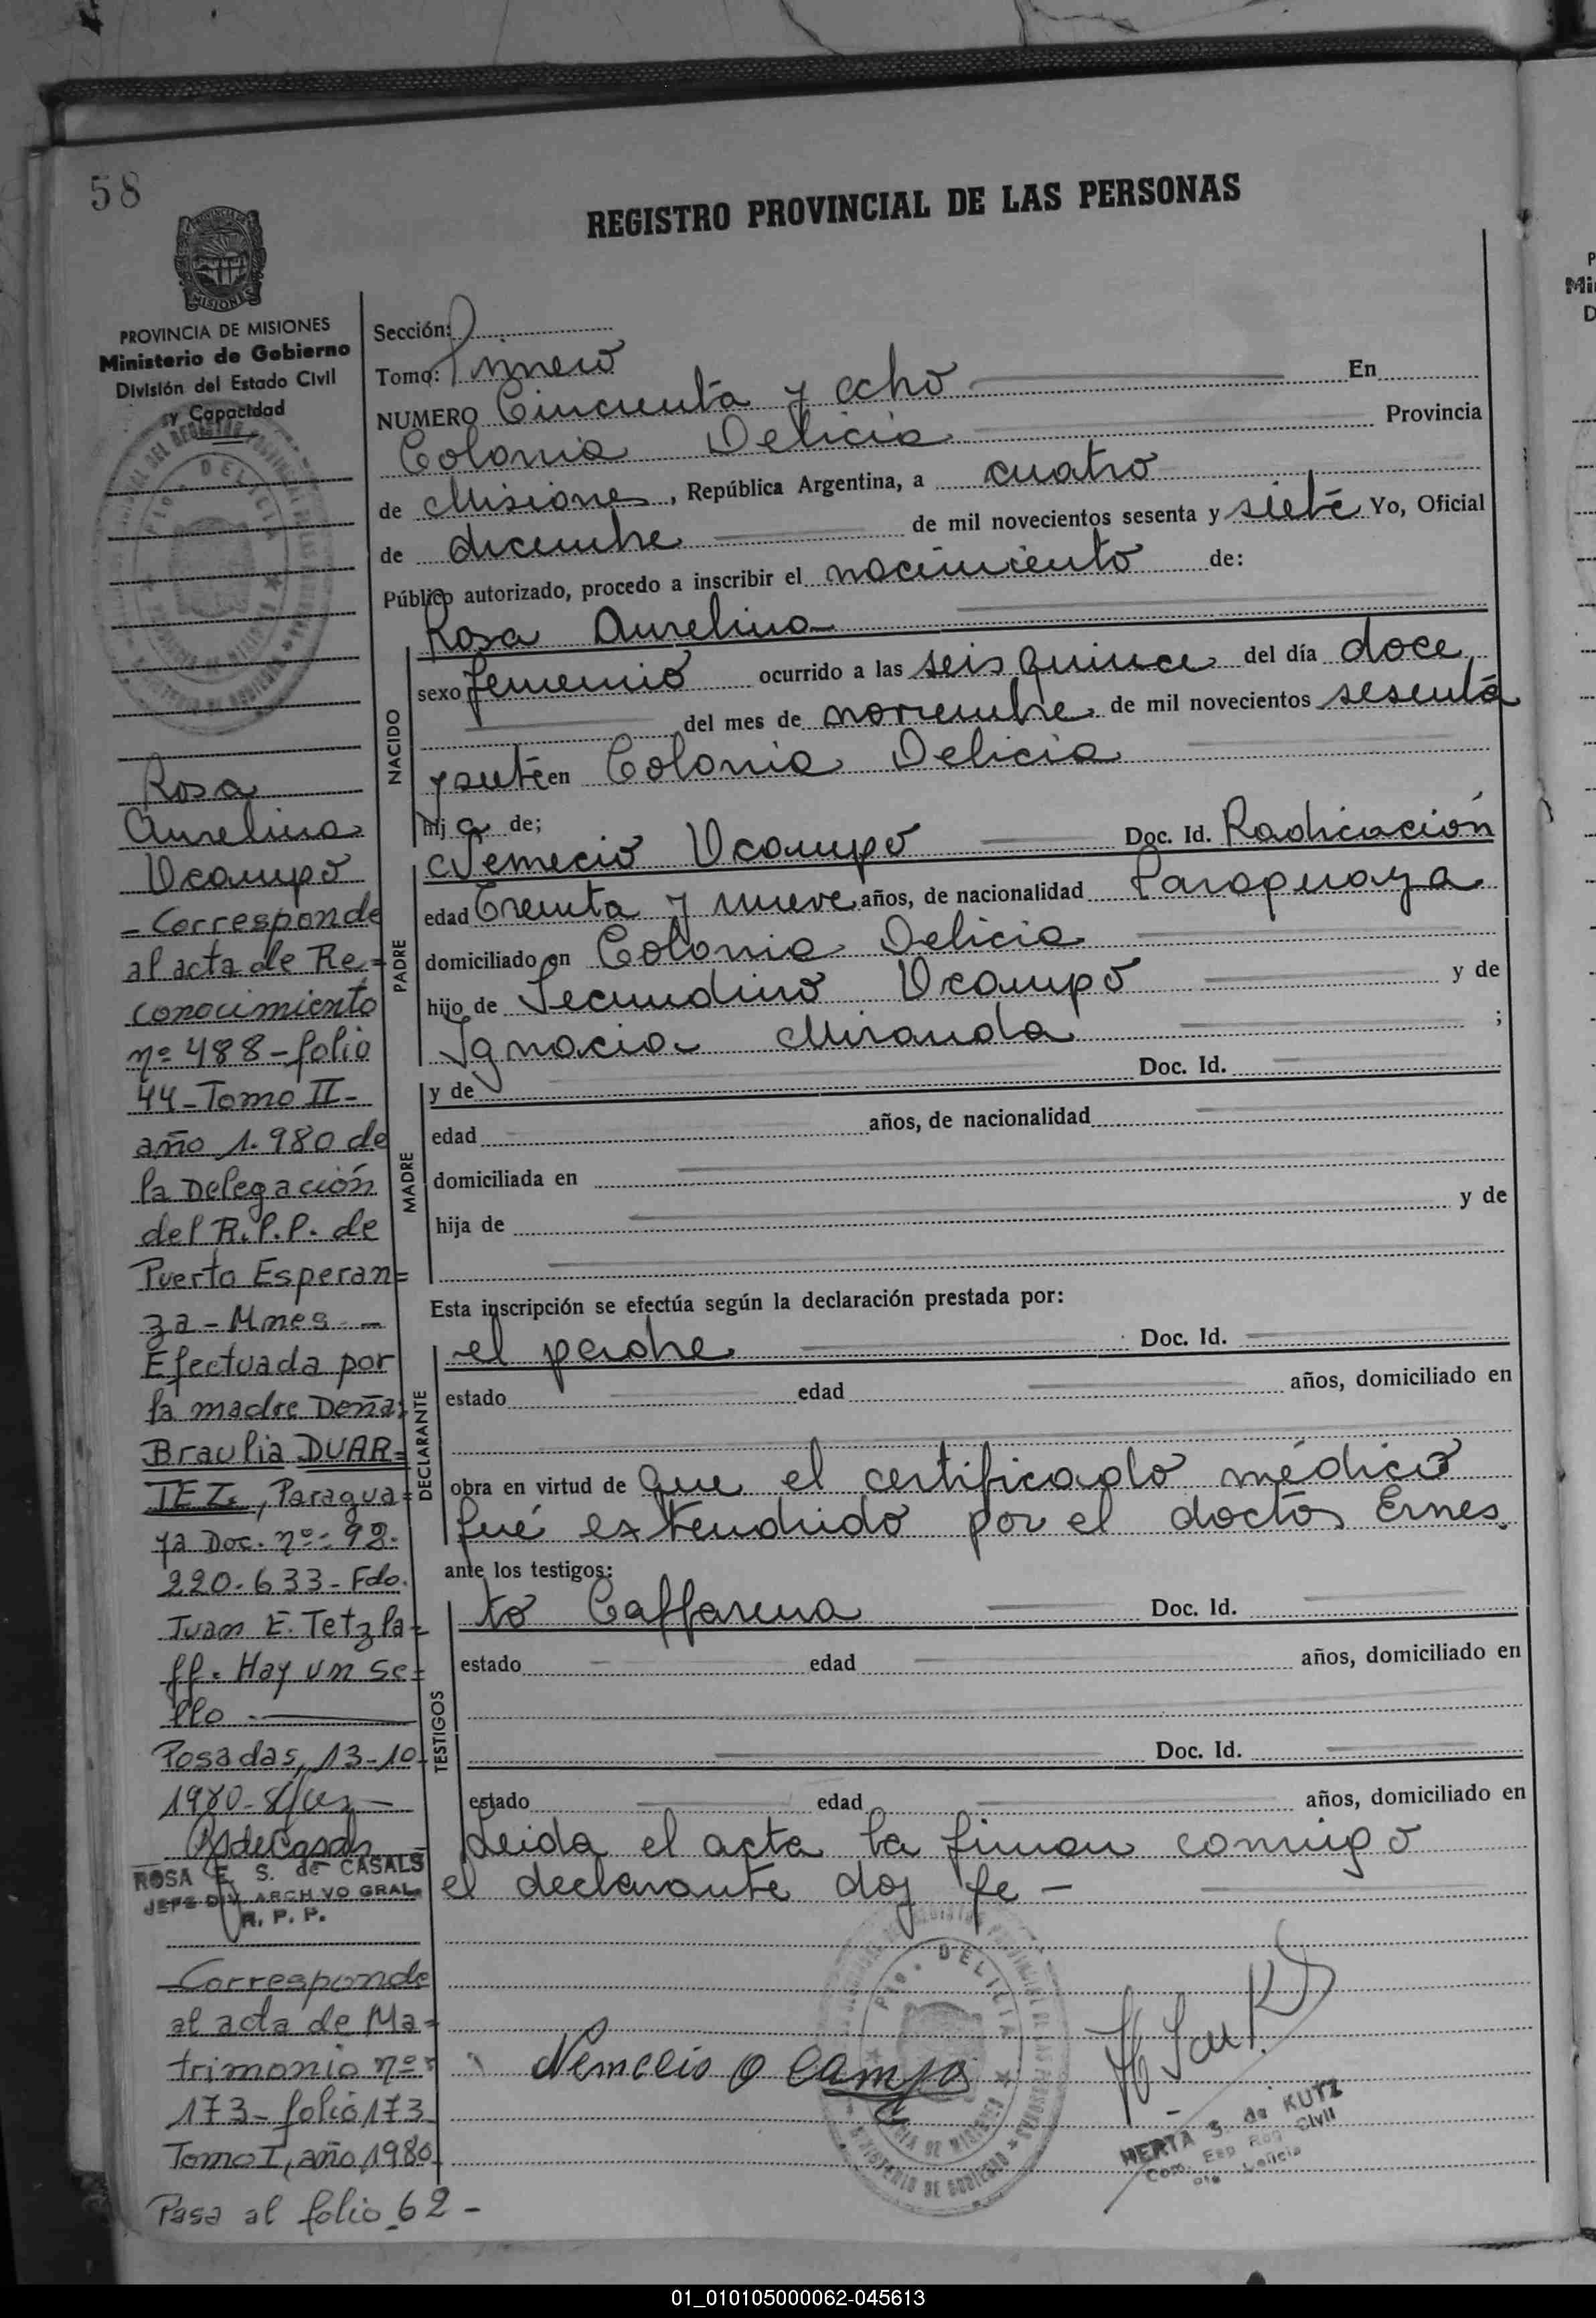 58
REGISTRO PROVINCIAL DE LAS PERSONAS
MISIONES
PROVINCIA DE MISIONES
Ministerio de Gobierno
División del Estado Civil
y Capacidad
Rosa
Aurelina
Ocampo
- Corresponde
al acta de Re=
conocimiento
nº 488 - folio
44 - Tomo II -
año 1.980 de
la Delegación
del R.P.P. de
Puerto Esperan=
za - Mnes. -
Efectuada por
la madre Doña:
Braulia DUAR=
TEZ, Paragua=
ya Doc. nº: 92.
220.633 - Fdo.
Juan E. Tetzla=
ff. Hay un se=
llo
Posadas, 13-10-
1980 -
ROSA E. S. de CASALS
JEFE DIV. ARCHIVO GRAL.
R. P. P.
Corresponde
al acta de Ma=
trimonio nº:
173 - folio 173
Tomo I, año 1980
Pasa al folio 62 -
Sección:
Tomo: Primero
NUMERO Cincuenta y ocho En
Colonia Delicia Provincia
de Misiones, República Argentina, a cuatro
de diciembre de mil novecientos sesenta y siete Yo, Oficial
Público autorizado, procedo a inscribir el nacimiento de:
NACIDO
Rosa Aurelina
sexo femenino ocurrido a las seis quince del día doce
del mes de noviembre de mil novecientos sesenta
y siete en Colonia Delicia
hija de;
PADRE
Nemecio Ocampo Doc. Id. Radicación
edad Treinta y nueve años, de nacionalidad Paraguaya
domiciliado en Colonia Delicia
hijo de Secundino Ocampo y de
Ignacia Miranda ;
MADRE
y de Doc. Id.
edad años, de nacionalidad
domiciliada en
hija de y de
Esta inscripción se efectúa según la declaración prestada por:
DECLARANTE
el padre Doc. Id.
estado edad años, domiciliado en
obra en virtud de que el certificado médico
fué extendido por el doctor Ernes
ante los testigos:
TESTIGOS
to Caffarena Doc. Id.
estado edad años, domiciliado en
Doc. Id.
estado edad años, domiciliado en
Leida el acta la firman conmigo
el declarante doy fe -
PTO. DELICIA
Nemecio Ocampo
HERTA S. de KUTZ
Reg Civil
Delicia
P
Mi
D
01_010105000062-045613